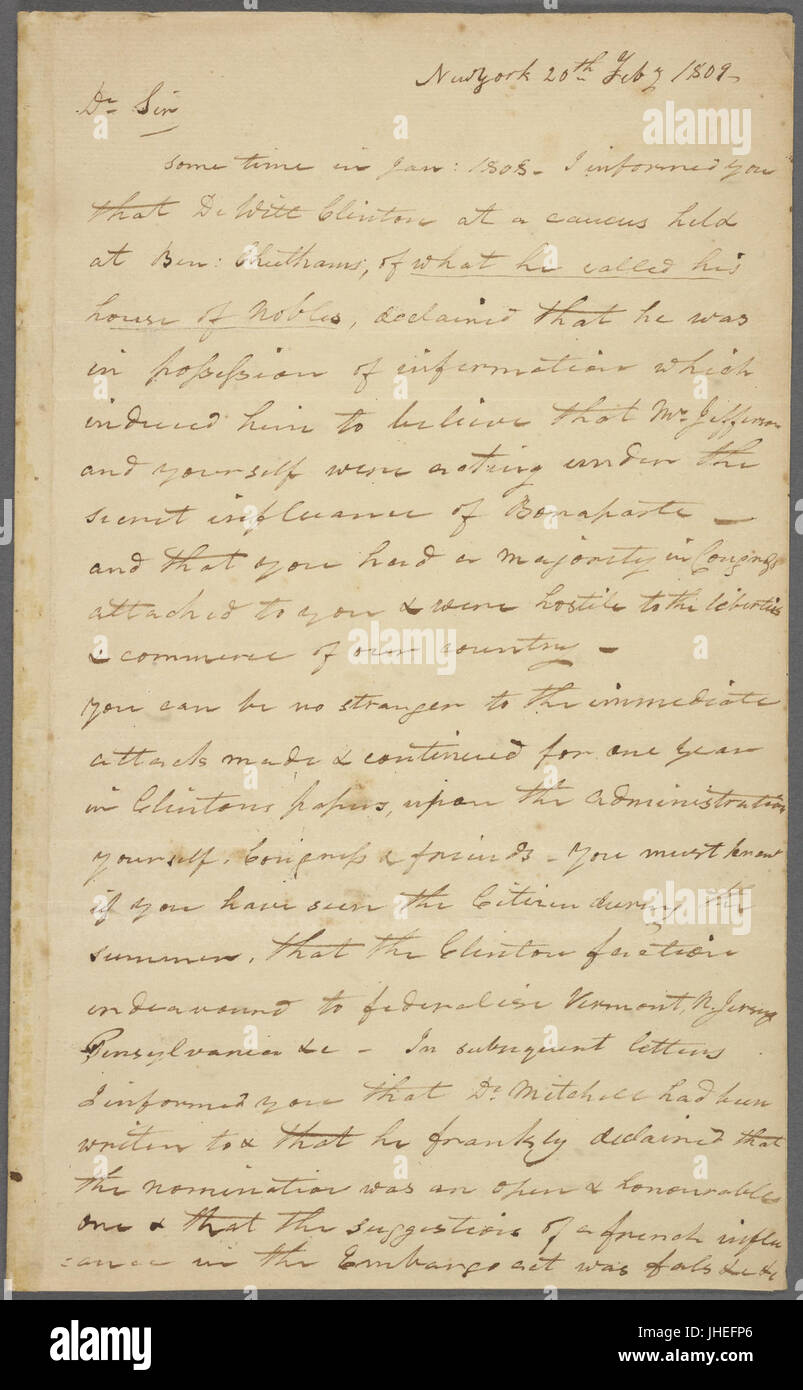 Newyork 20th Feby 1809
Dr Sir
some time in Jan: 1808 - I informed you
that DeWitt Clinton at a caucus held
at Ben: Cheethams, of what he called his
house of Nobles, declaired that he was
in possession of information which
induced him to believe that Mr Jefferson
and yourself were acting under the
secret influance of Bonaparte —
and that you had a majority in Congress
attached to you & were hostile to the liberties
& commerce of our country -
you can be no stranger to the immediate
attacks made & continued for one year
in Clintons papers, upon the administration
yourself, Congress & friends - you must know
if you have seen the Citizen during the
summer, that the Clinton faction
indeavourd to federalise Vermont, N. Jersey
Pensylvania &c - In subsequent letters
I informed you that Dr Mitchell had been
writen to & that he frankly declaired that
the nomination was an open & honourable
one & that the suggestion of a french influ
=ance in the Embargo act was fals &c &c
alamy
alamy
alamy
Image ID: JHEFP6
www.alamy.com